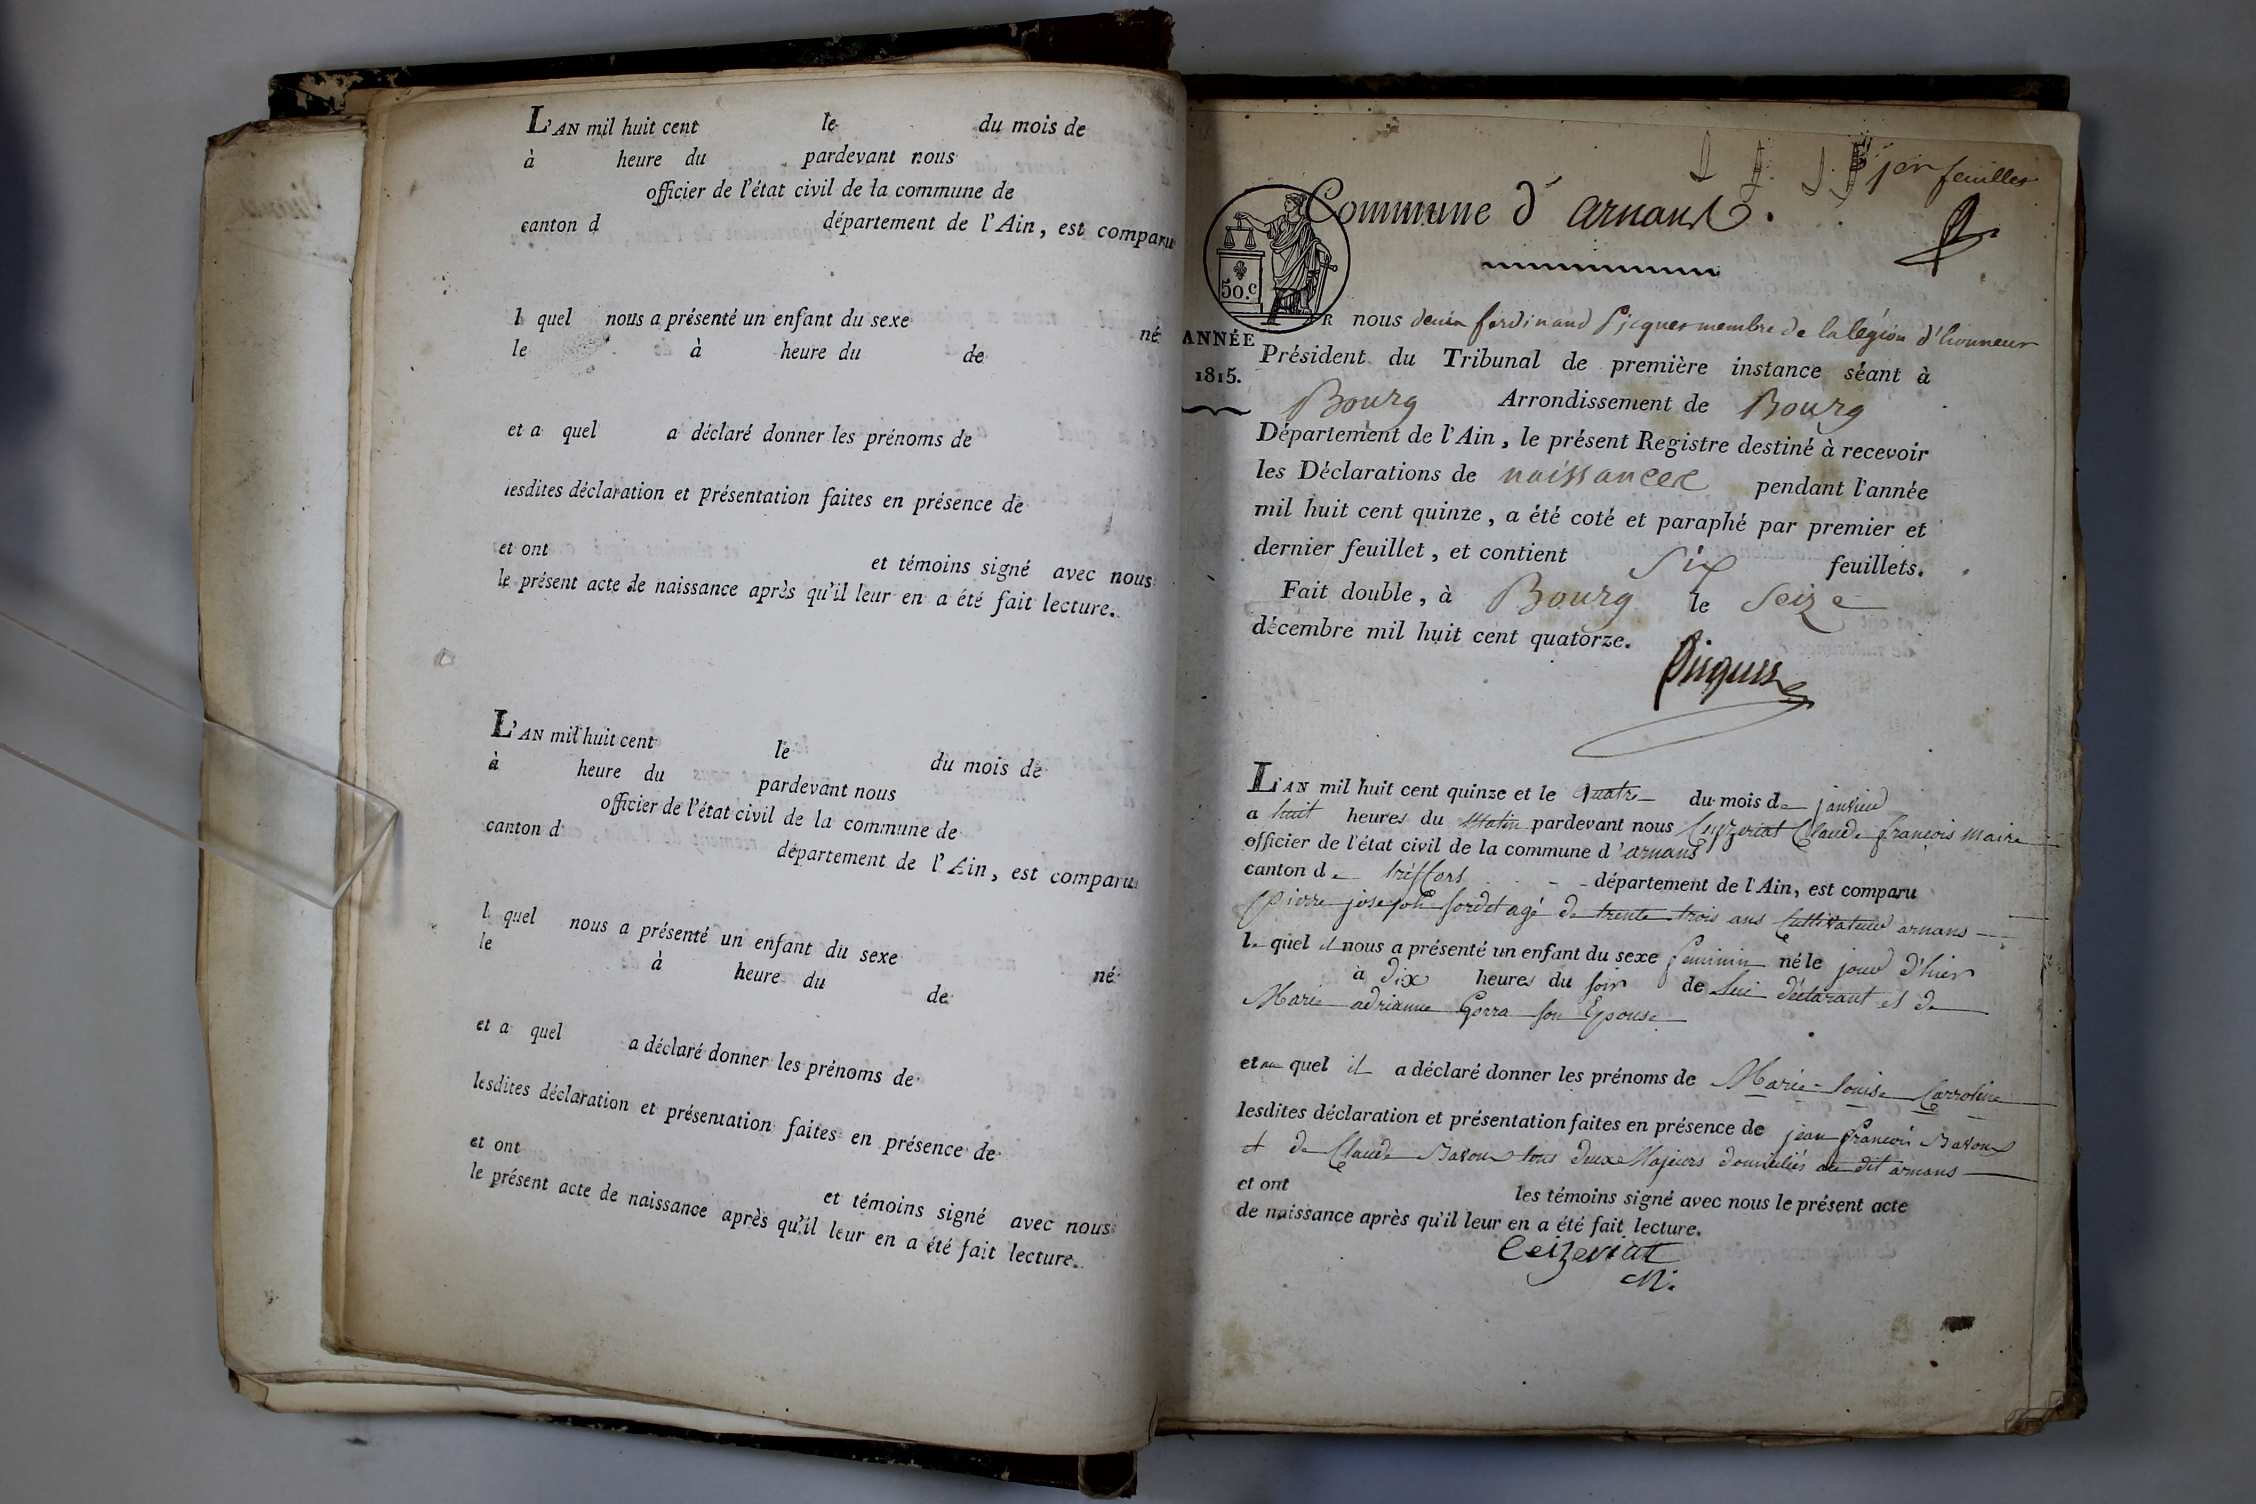 L'AN mil huit cent le du mois de
à heure du pardevant nous
officier de l'état civil de la commune de
canton d département de l'Ain, est comparu
l quel nous a présenté un enfant du sexe né
le à heure du de
et a quel a déclaré donner les prénoms de
lesdites déclaration et présentation faites en présence de
et ont et témoins signé avec nous
le présent acte de naissance après qu'il leur en a été fait lecture.
L'AN mil huit cent le du mois de
à heure du pardevant nous
officier de l'état civil de la commune de
canton d département de l'Ain, est comparu
l quel nous a présenté un enfant du sexe né
le à heure du de
et a quel a déclaré donner les prénoms de
lesdites déclaration et présentation faites en présence de
et ont et témoins signé avec nous
le présent acte de naissance après qu'il leur en a été fait lecture.
feuillet
Commune d'arnans.
50.c
R nous denis ferdinand Picquet membre de la légion d'honneur
ANNÉE
1815.
Président du Tribunal de première instance séant à
Bourg Arrondissement de Bourg
Département de l'Ain, le présent Registre destiné à recevoir
les Déclarations de naissances pendant l'année
mil huit cent quinze, a été coté et paraphé par premier et
dernier feuillet, et contient six feuillets.
Fait double, à Bourg le seize
décembre mil huit cent quatorze.
Picquet
L'AN mil huit cent quinze et le quatre du mois de janvier
a huit heures du matin pardevant nous Ceyzeriat Claude françois maire
officier de l'état civil de la commune d'arnans
canton de treffort département de l'Ain, est comparu
Pierre joseph sordet agé de trente trois ans Cultivateur arnans
le quel il nous a présenté un enfant du sexe feminin né le jour d'hier
à dix heures du soir de lui déclarant et de
Marie adrianne Gorra son Epouse
et au quel il a déclaré donner les prénoms de Marie-louise Carroline
lesdites déclaration et présentation faites en présence de jean françois Bavoux
et de Claude Bavoux tous deux Majeurs domiciliés au dit arnans
et ont les témoins signé avec nous le présent acte
de naissance après qu'il leur en a été fait lecture.
Ceizeriat
M.